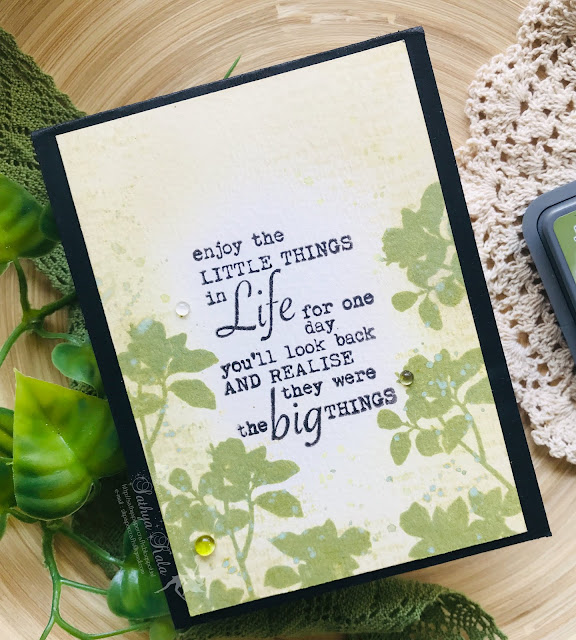 enjoy the
LITTLE THINGS
in Life for one
day
you'll look back
AND REALISE
they were
the big THINGS
Sathya Kala